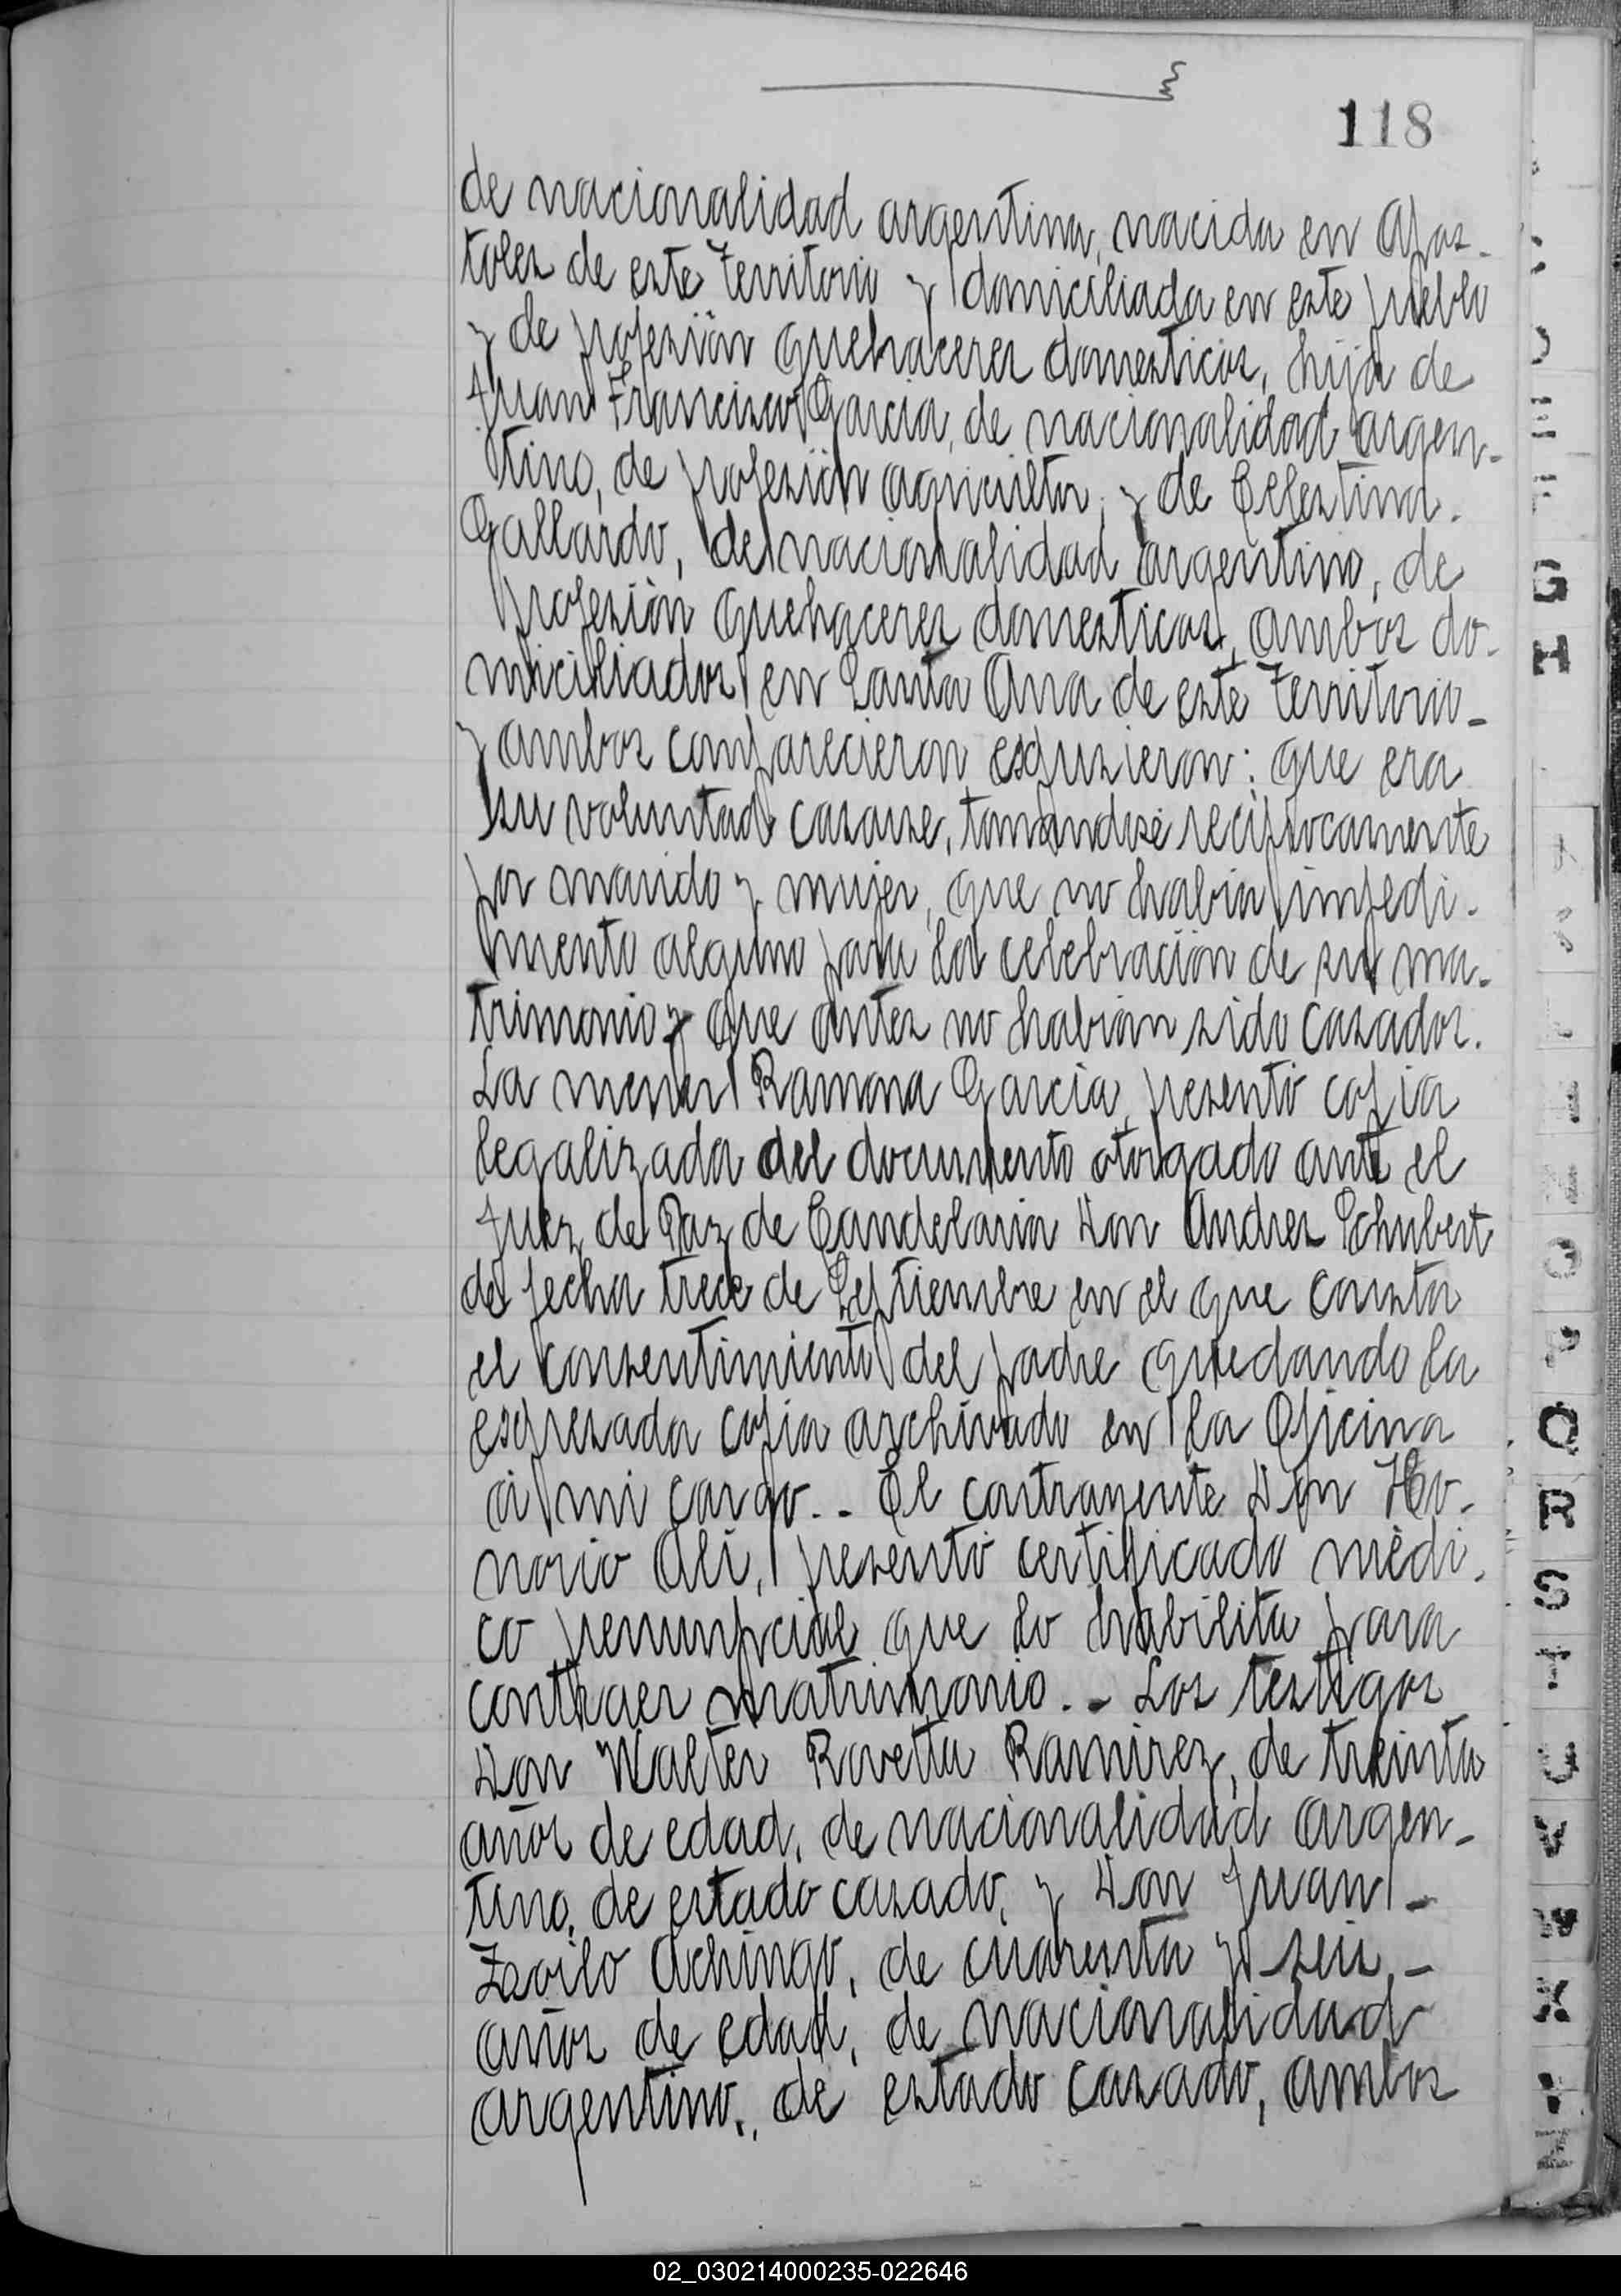 118
de nacionalidad argentina, nacida en Apos-
toles de este Territorio y domiciliada en este pueblo
y de profesión quehaceres domesticos, hija de
Juan Francisco Garcia, de nacionalidad argen-
tino, de profesión agricultor, y de Celestina.
Gallardo, de nacionalidad argentino, de
profesión quehaceres domesticos, ambos do-
miciliados en Santa Ana de este Territorio-
y ambos comparecieron expusieron: que era
su voluntad casarse, tomandose reciprocamente
por marido y mujer, que no habia impedi-
mento alguno para la celebración de su ma-
trimonio y que antes no habian sido casados.
La menor Ramona Garcia, presentó copia
legalizada del documento otorgado ante el
Juez de Paz de Candelaria Don Andres Schubert
de fecha trece de Septiembre en el que consta
el consentimiento del padre quedando la
expresada copia archivado en la Oficina
a mi cargo.- El contrayente Don Ho-
norio Ali, presentó certificado médi-
co prenupcial que lo habilita para
contraer matrimonio.- Los testigos
Don Walter Rovetta Ramirez, de treinta
años de edad, de nacionalidad argen-
tino, de estado casado, y Don Juan-
Zoilo Achinao, de cuarenta y seis-
años de edad, de nacionalidad
argentino, de estado casado, ambos
G
H
O
Q
R
S
T
U
V
W
X
02_030214000235-022646